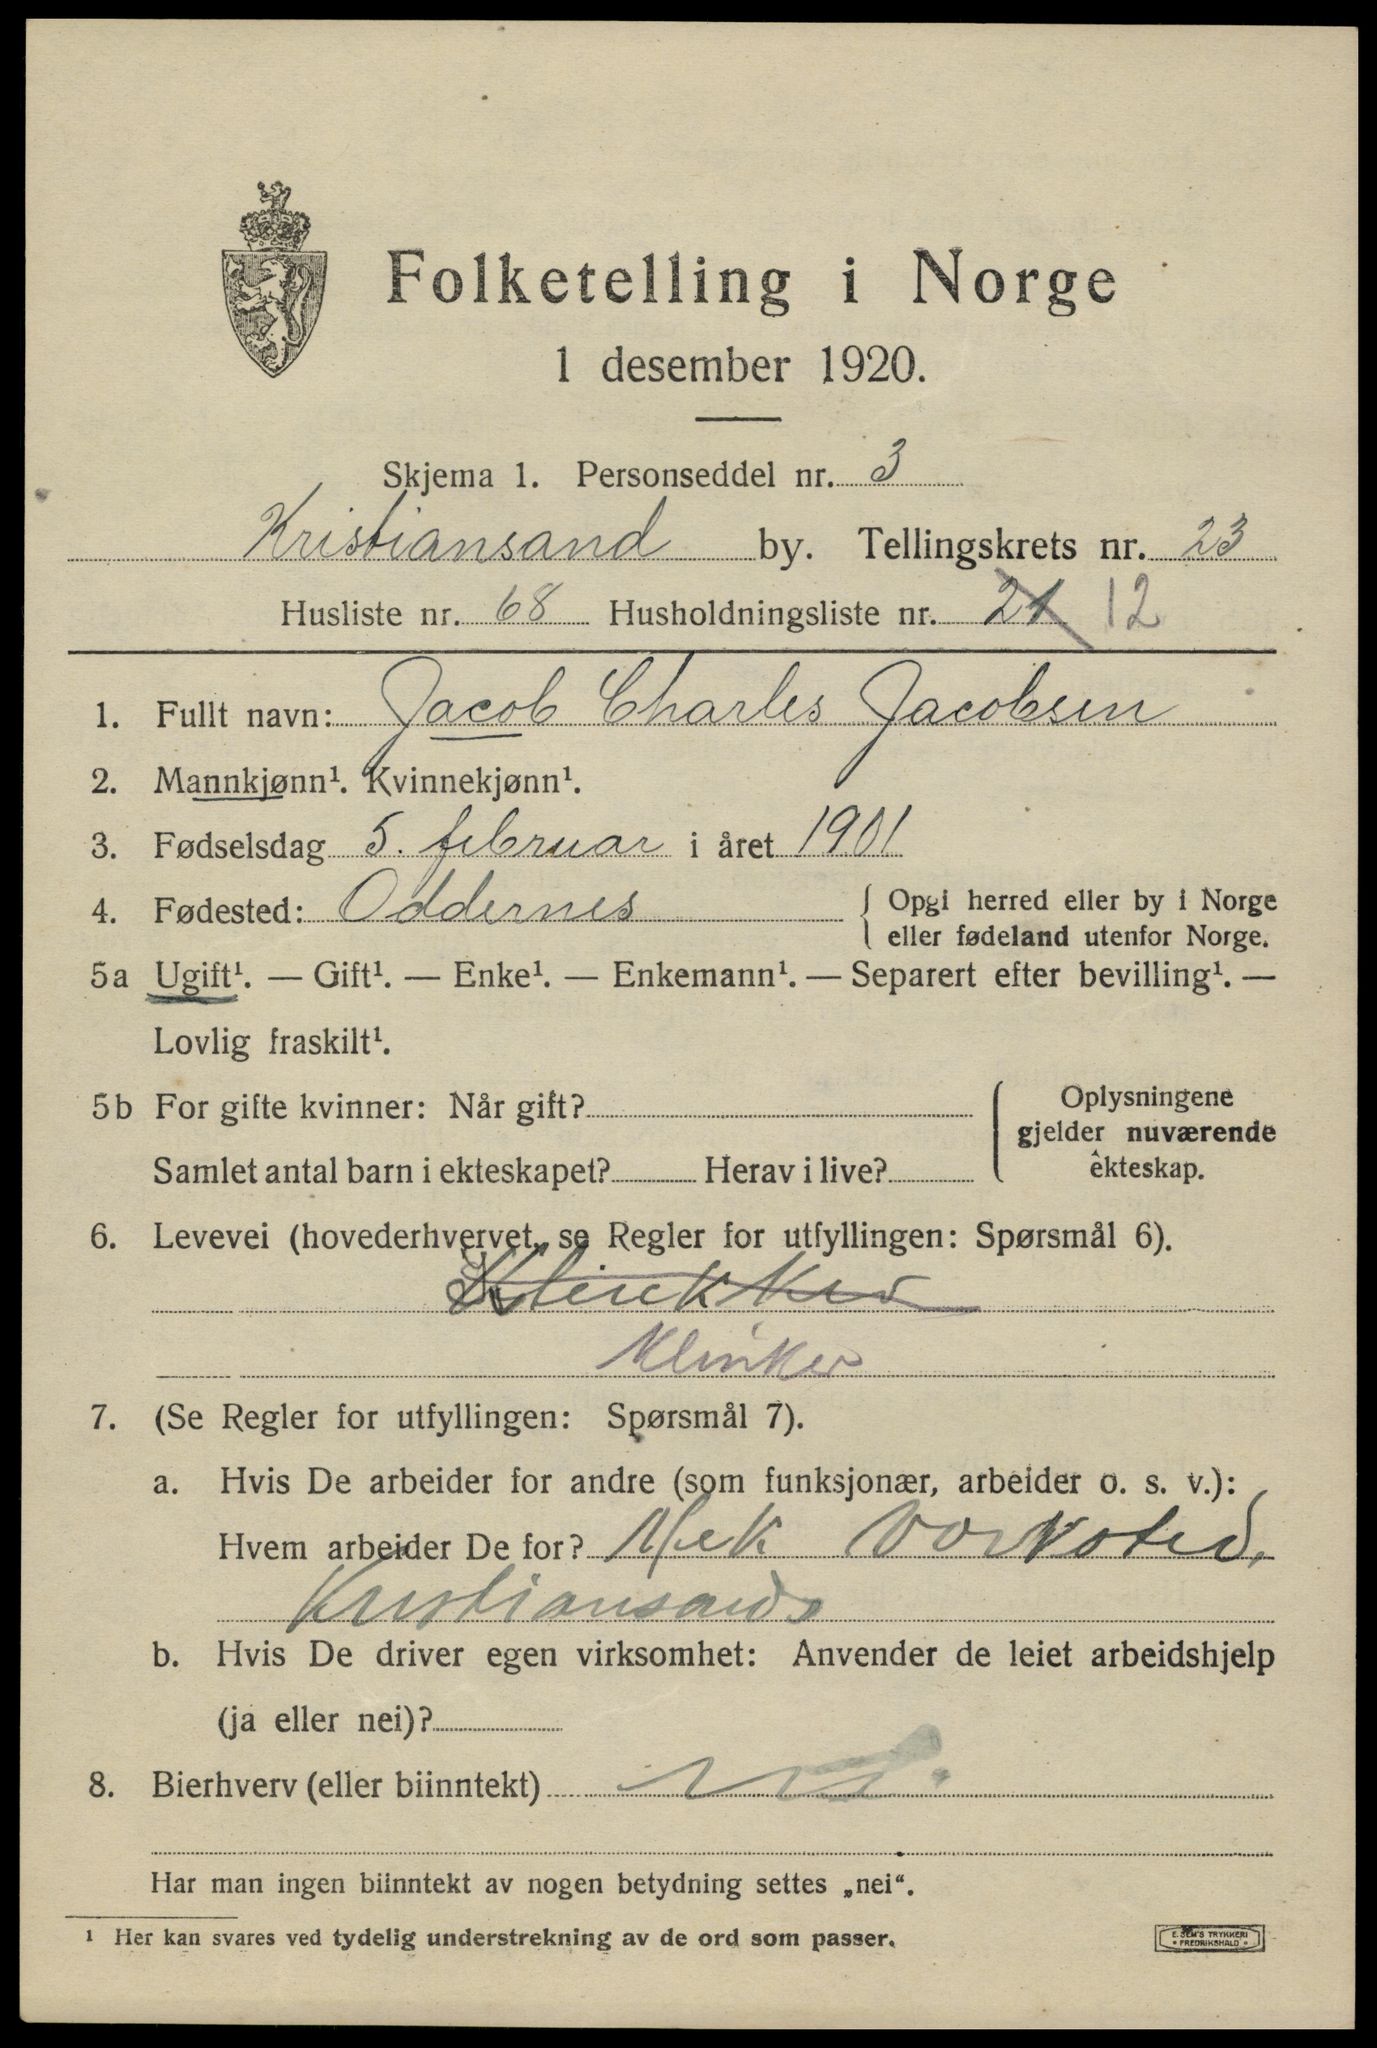 Folketelling i Norge
1 desember 1920.
Skjema 1. Personseddel nr. 3
Kristiansand by. Tellingskrets nr. 23
Husliste nr. 68 Husholdningsliste nr. 21 12
1. Fullt navn: Jacob Charles Jacobsen
2. Mannkjønn¹. Kvinnekjønn¹.
3. Fødselsdag 5. februar i året 1901
4. Fødested: Oddernes { Opgi herred eller by i Norge
eller fødeland utenfor Norge.
5a Ugift¹. — Gift¹. — Enke¹. — Enkemann¹. — Separert efter bevilling¹. —
Lovlig fraskilt¹.
5b For gifte kvinner: Når gift?
Samlet antal barn i ekteskapet? Herav i live?
Oplysningene
gjelder nuværende
ekteskap.
6. Levevei (hovederhvervet, se Regler for utfyllingen: Spørsmål 6).
Klinker
7. (Se Regler for utfyllingen: Spørsmål 7).
a. Hvis De arbeider for andre (som funksjonær, arbeider o. s. v.):
Hvem arbeider De for? Mek
Kristiansands
b. Hvis De driver egen virksomhet: Anvender de leiet arbeidshjelp
(ja eller nei)?
8. Bierhverv (eller biinntekt) nei.
Har man ingen biinntekt av nogen betydning settes „nei“.
¹ Her kan svares ved tydelig understrekning av de ord som passer.
E. SEM'S TRYKKERI
• FREDRIKSHALD •